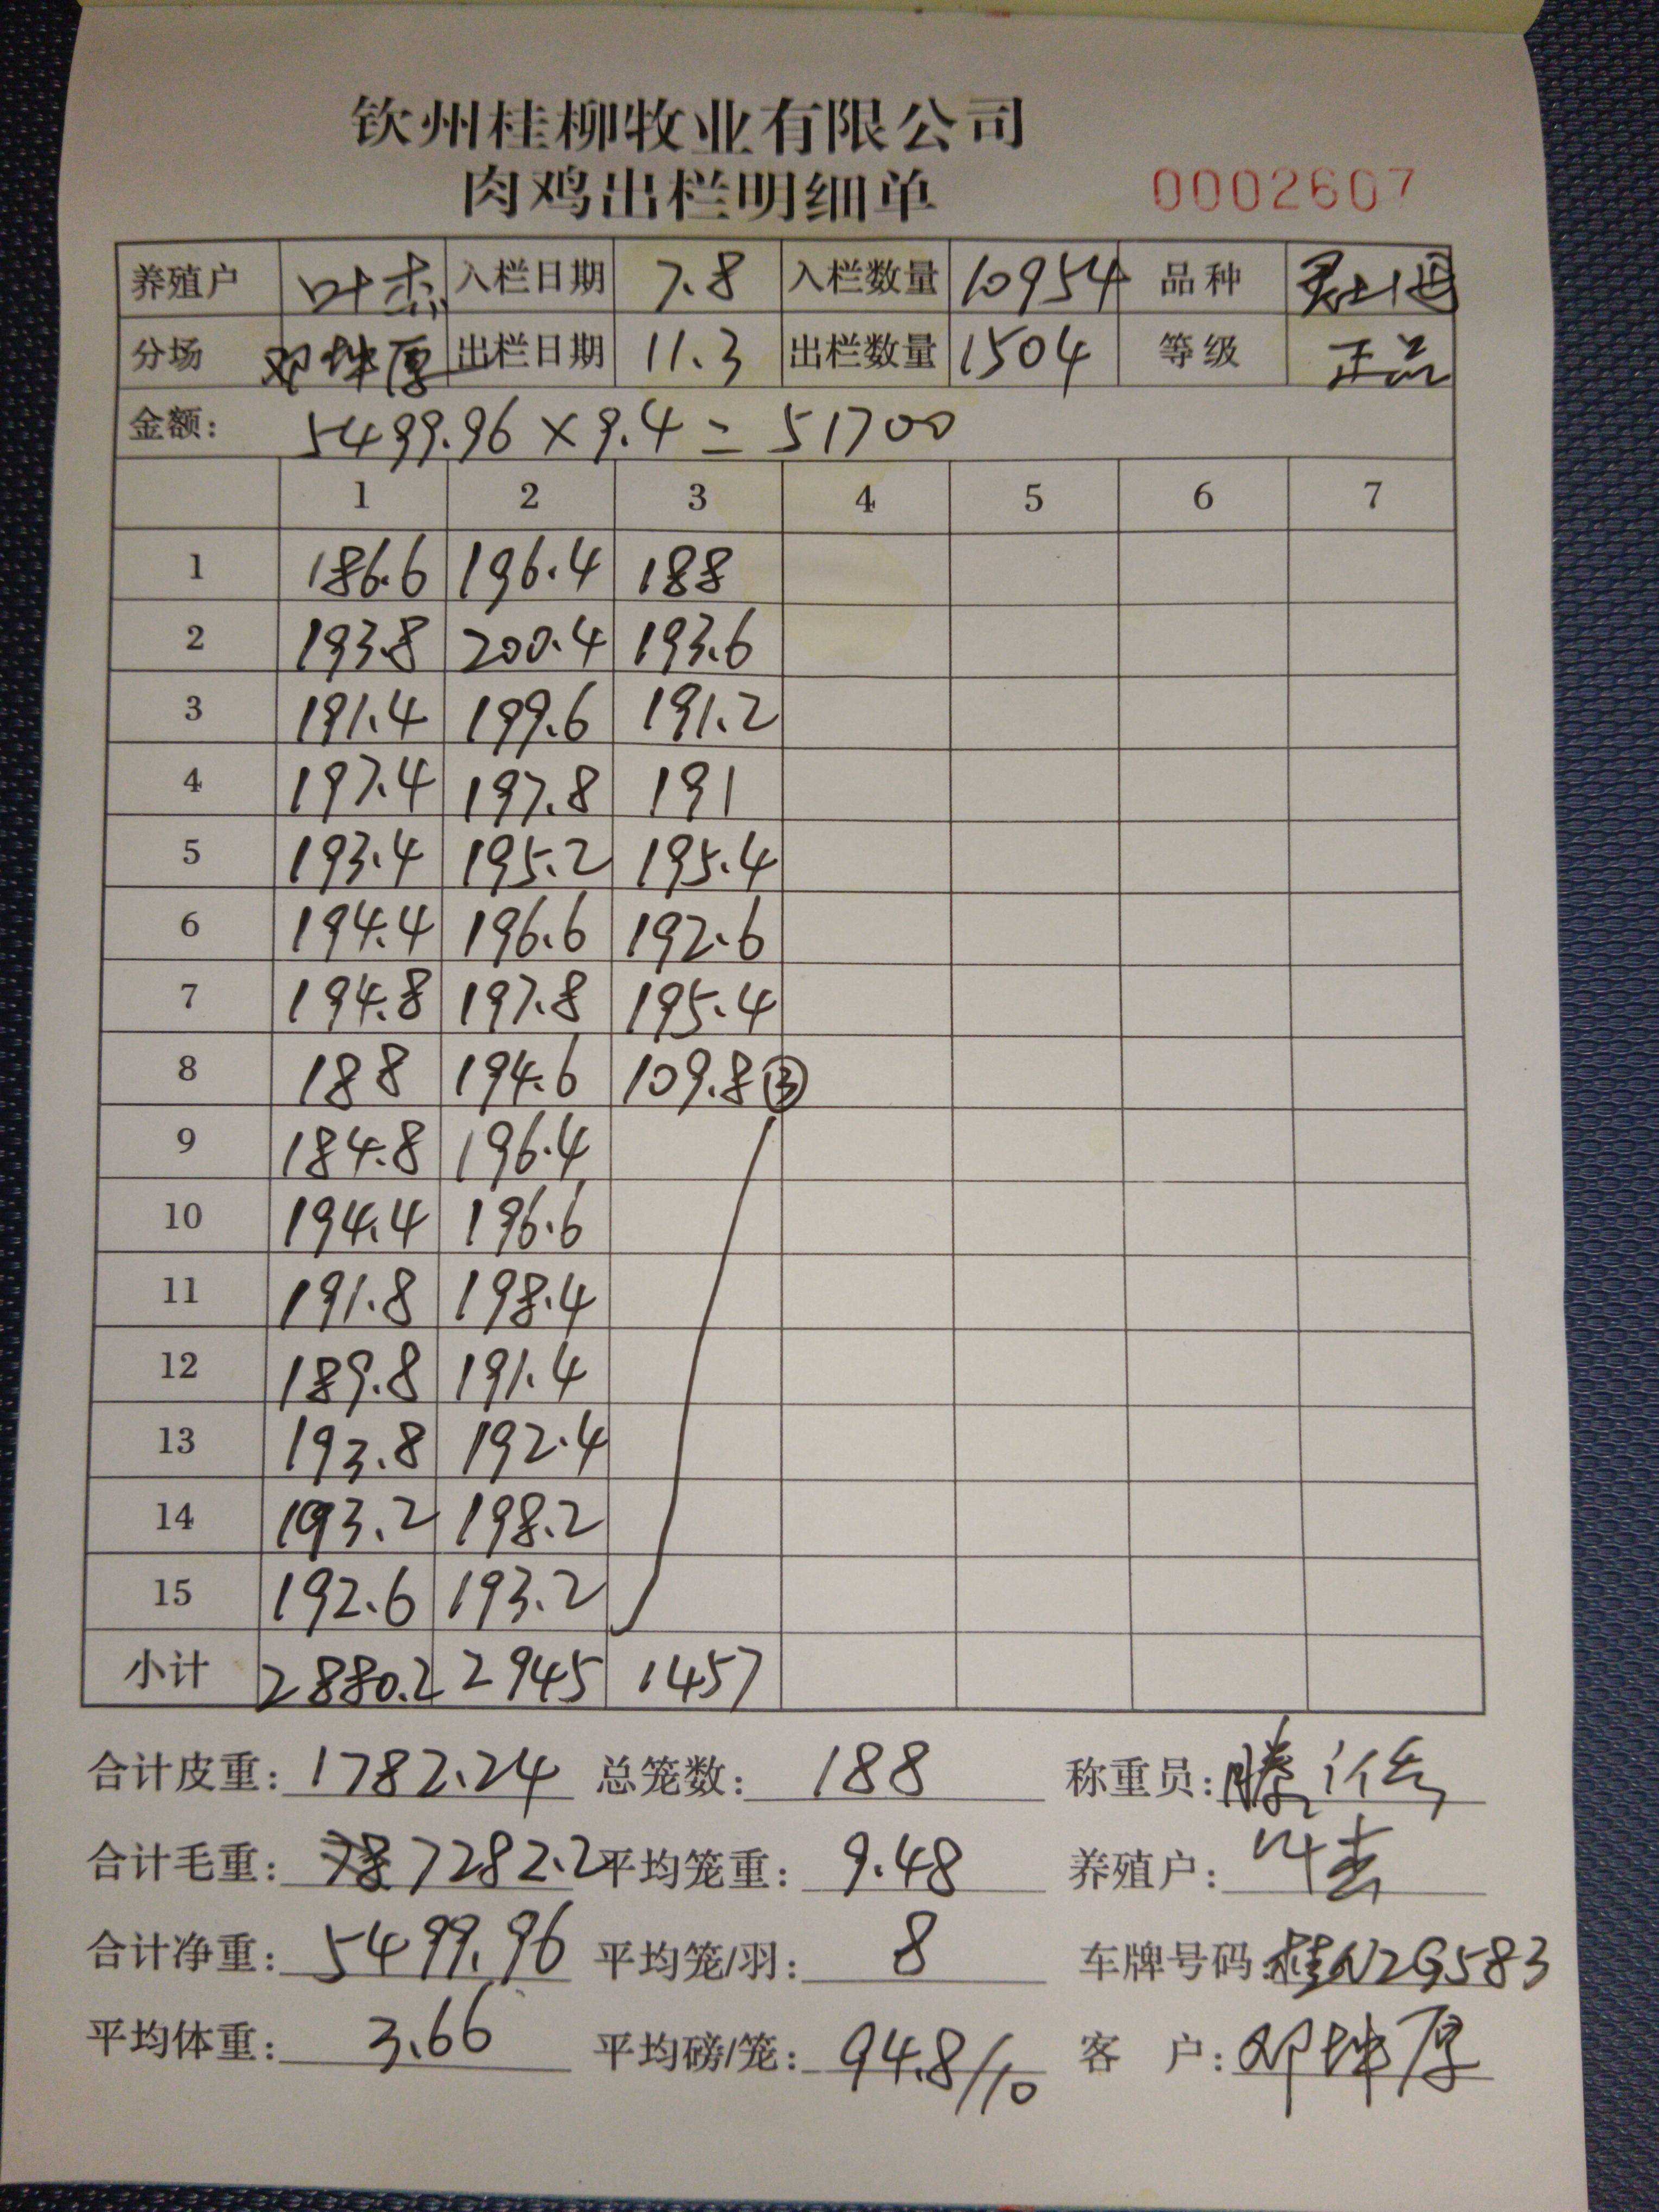 钦州桂柳牧业有限公司
肉鸡出栏明细单 0002607
养殖户 叶杰 入栏日期 7.8 入栏数量 10954 品种
分场 邓坤厚 出栏日期 11.3 出栏数量 1504 等级 正品
金额: 5499.96×9.4=51700
1 2 3 4 5 6 7
1 186.6 196.4 188
2 193.8 200.4 193.6
3 191.4 199.6 191.2
4 197.4 197.8 191
5 193.4 195.2 195.4
6 194.4 196.6 192.6
7 194.8 197.8 195.4
8 188 194.6 109.8 ③
9 184.8 196.4
10 194.4 196.6
11 191.8 198.4
12 189.8 191.4
13 193.8 192.4
14 193.2 198.2
15 192.6 193.2
小计 2880.2 2945 1457
合计皮重: 1782.24 总笼数: 188 称重员:
合计毛重: 7282.2 平均笼重: 9.48 养殖户: 叶杰
合计净重: 5499.96 平均笼/羽: 8 车牌号码: 桂N2G583
平均体重: 3.66 平均磅/笼: 94.8/10 客 户: 邓坤厚